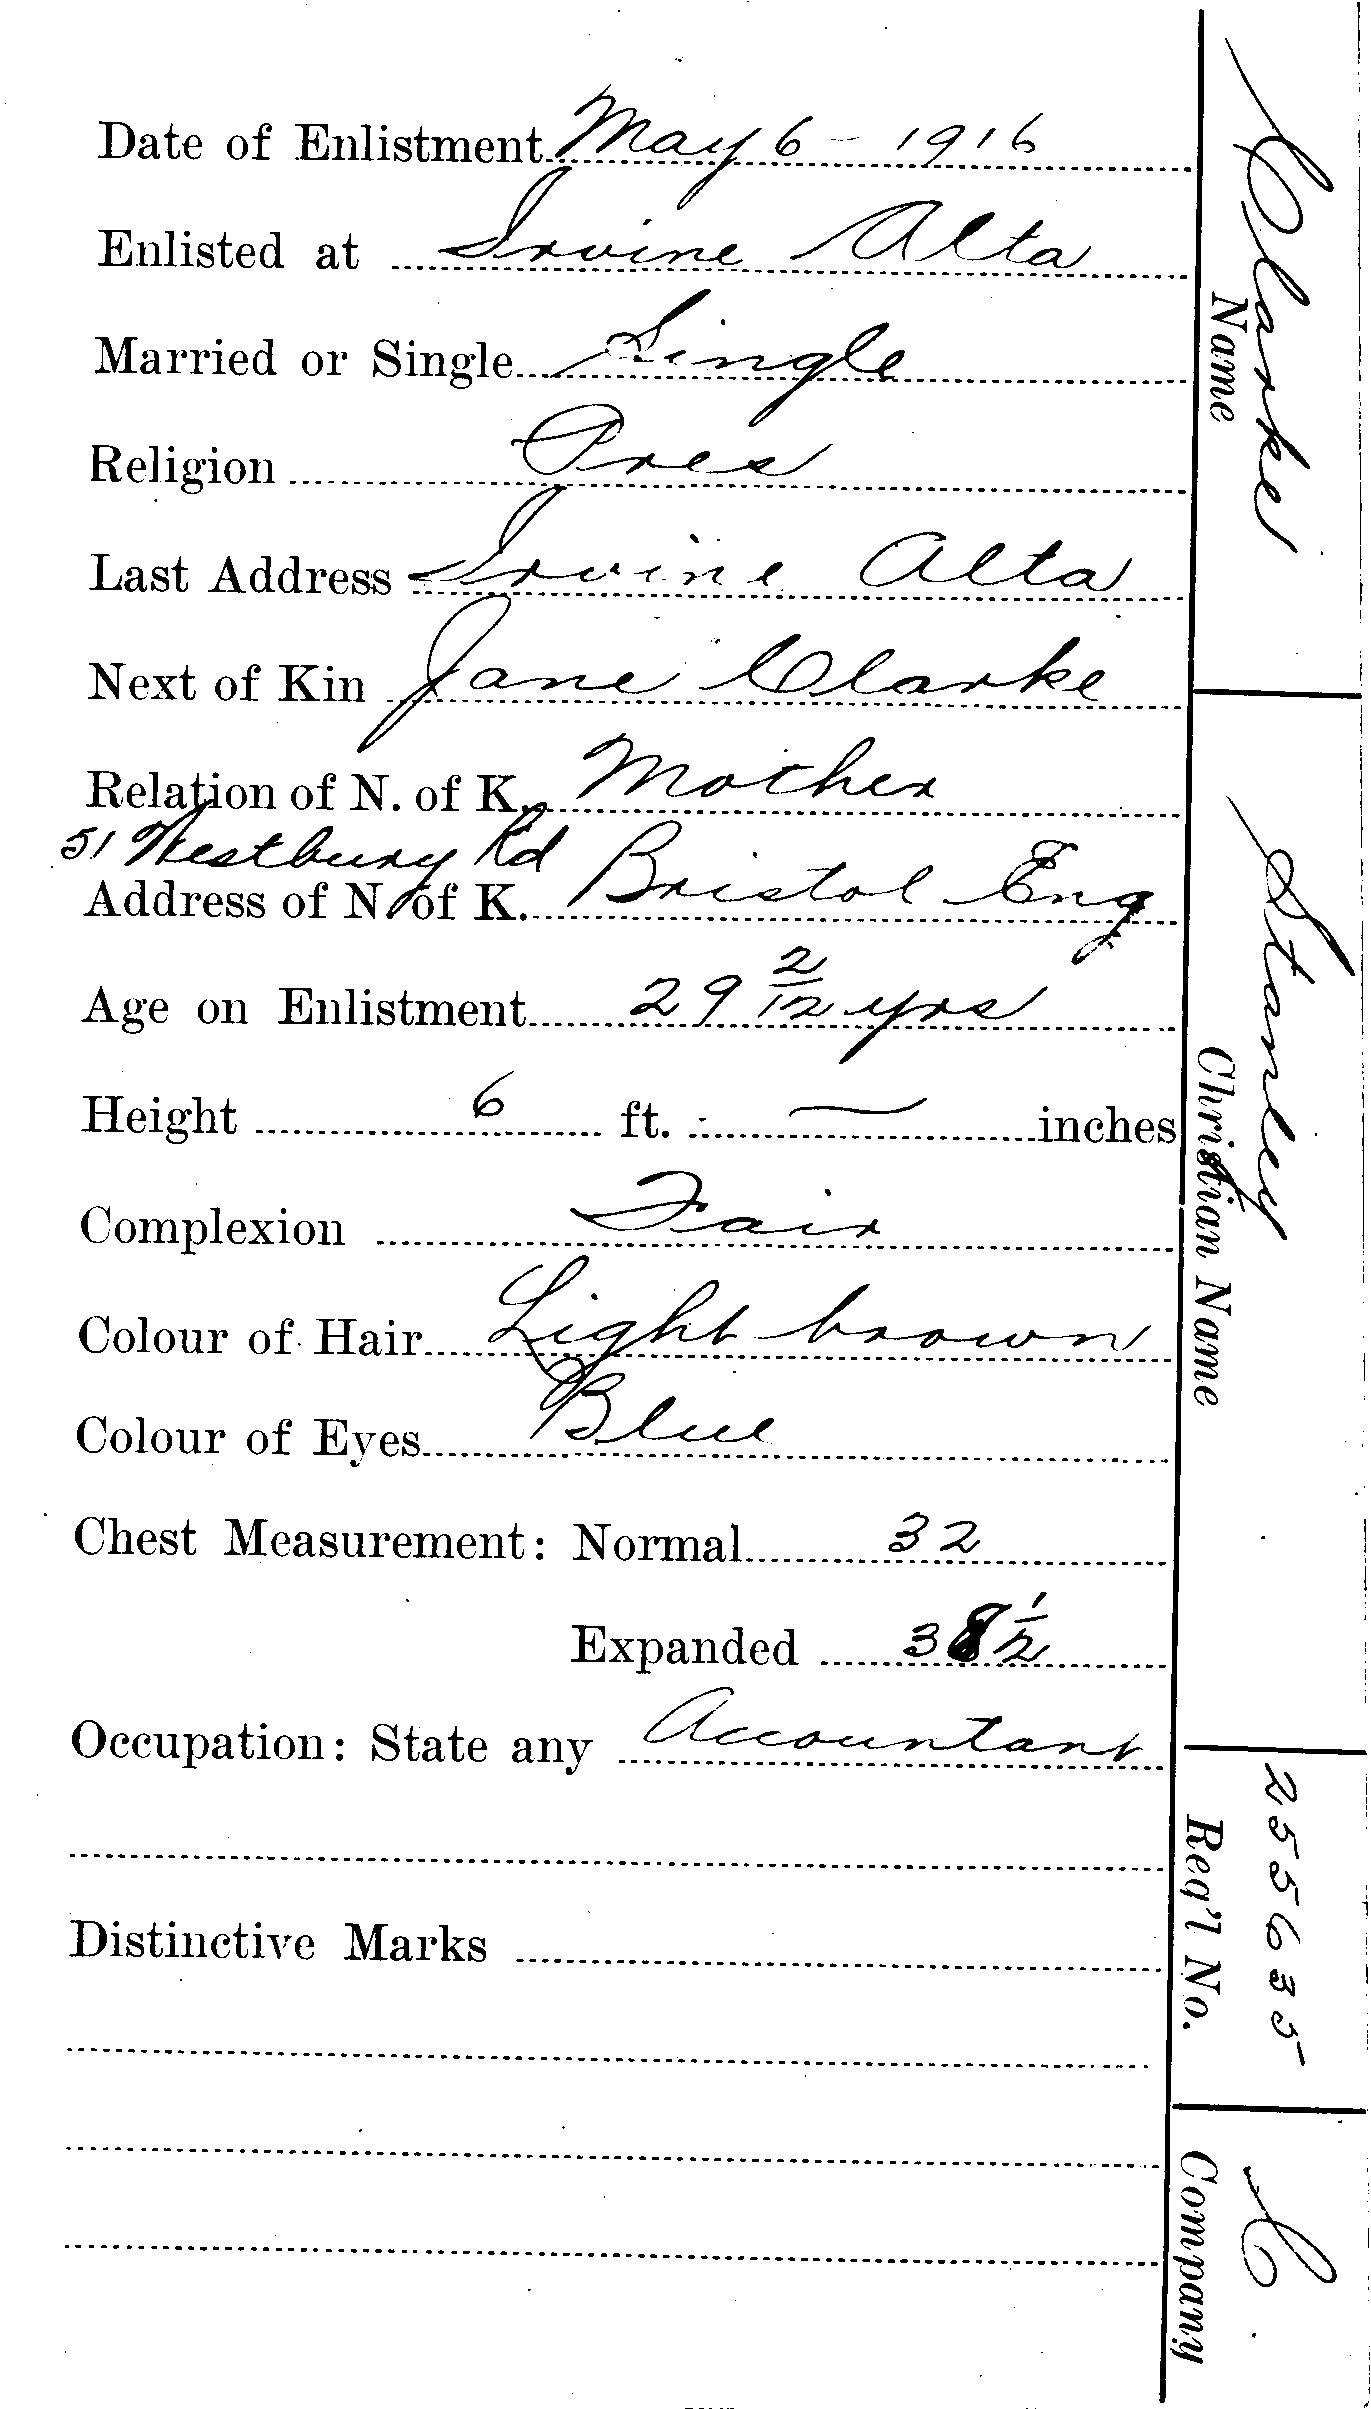 Date of Enlistment May 6 - 1916
Enlisted at Irvine Alta
Married or Single Single
Religion Pres
Last Address Irvine Alta
Next of Kin Jane Clarke
Relation of N. of K. Mother
51 Westbury Rd
Address of N. of K. Bristol Eng
Age on Enlistment 29 2/12 yrs
Height 6 ft. — inches
Complexion Fair
Colour of Hair Light brown
Colour of Eyes Blue
Chest Measurement: Normal 32
Expanded 38 1/2
Occupation: State any Accountant
Distinctive Marks
Clarke
Name
Stanley
Christian Name
255635
Reg'l No.
C
Company